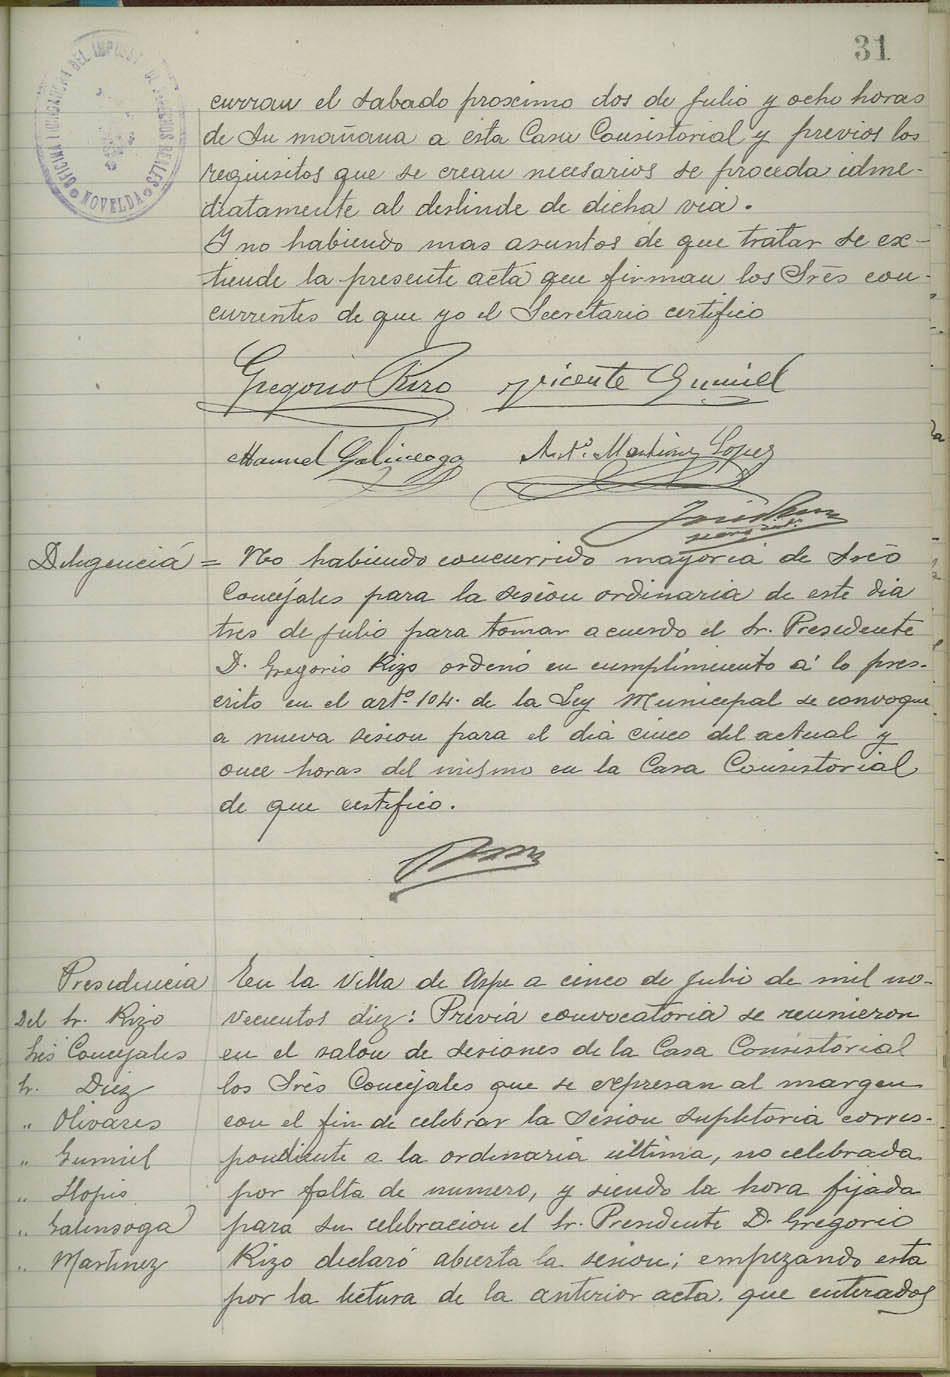 31
OFICINA LIQUIDADORA DEL IMPUESTO DE DERECHOS REALES
NOVELDA
curran el sabado proximo dos de Julio y ocho horas
de su mañana a esta Casa Consistorial y previos los
requisitos que se crean necesarios se proceda idme-
diatamente al deslinde de dicha via.
Y no habiendo mas asuntos de que tratar se ex-
tiende la presente acta que firman los Srés con-
currentes de que yo el Secretario certifico
Gregorio Rizo Vicente Gumiel
Manuel Galinsoga Antº. Martinez Lopez
Diligencia = No habiendo concurrido mayoria de Srés
Concejales para la sesion ordinaria de este dia
tres de julio para tomar acuerdo el Sr. Presidente
D. Gregorio Rizo ordenó en cumplimiento á lo pres-
crito en el artº 104. de la Ley Municipal se convoque
a nueva sesion para el dia cinco del actual y
once horas del mismo en la Casa Consistorial
de que certifico.
Presidencia
Del Sr. Rizo
Srés Concejales
Sr. Diez
" Olivares
" Gumiel
" Llopis
" Galinsoga
" Martinez
En la Villa de Aspe a cinco de Julio de mil no-
vecientos diez: Previá convocatoria se reunieron
en el salon de sesiones de la Casa Consistorial
los Srés Concejales que se expresan al margen
con el fin de celebrar la sesion supletoria corres-
pondiente a la ordinaria última, no celebrada
por falta de numero, y siendo la hora fijada
para su celebracion el Sr. Presidente D. Gregorio
Rizo declaró abierta la sesion; empezando esta
por la lectura de la anterior acta. que enterados